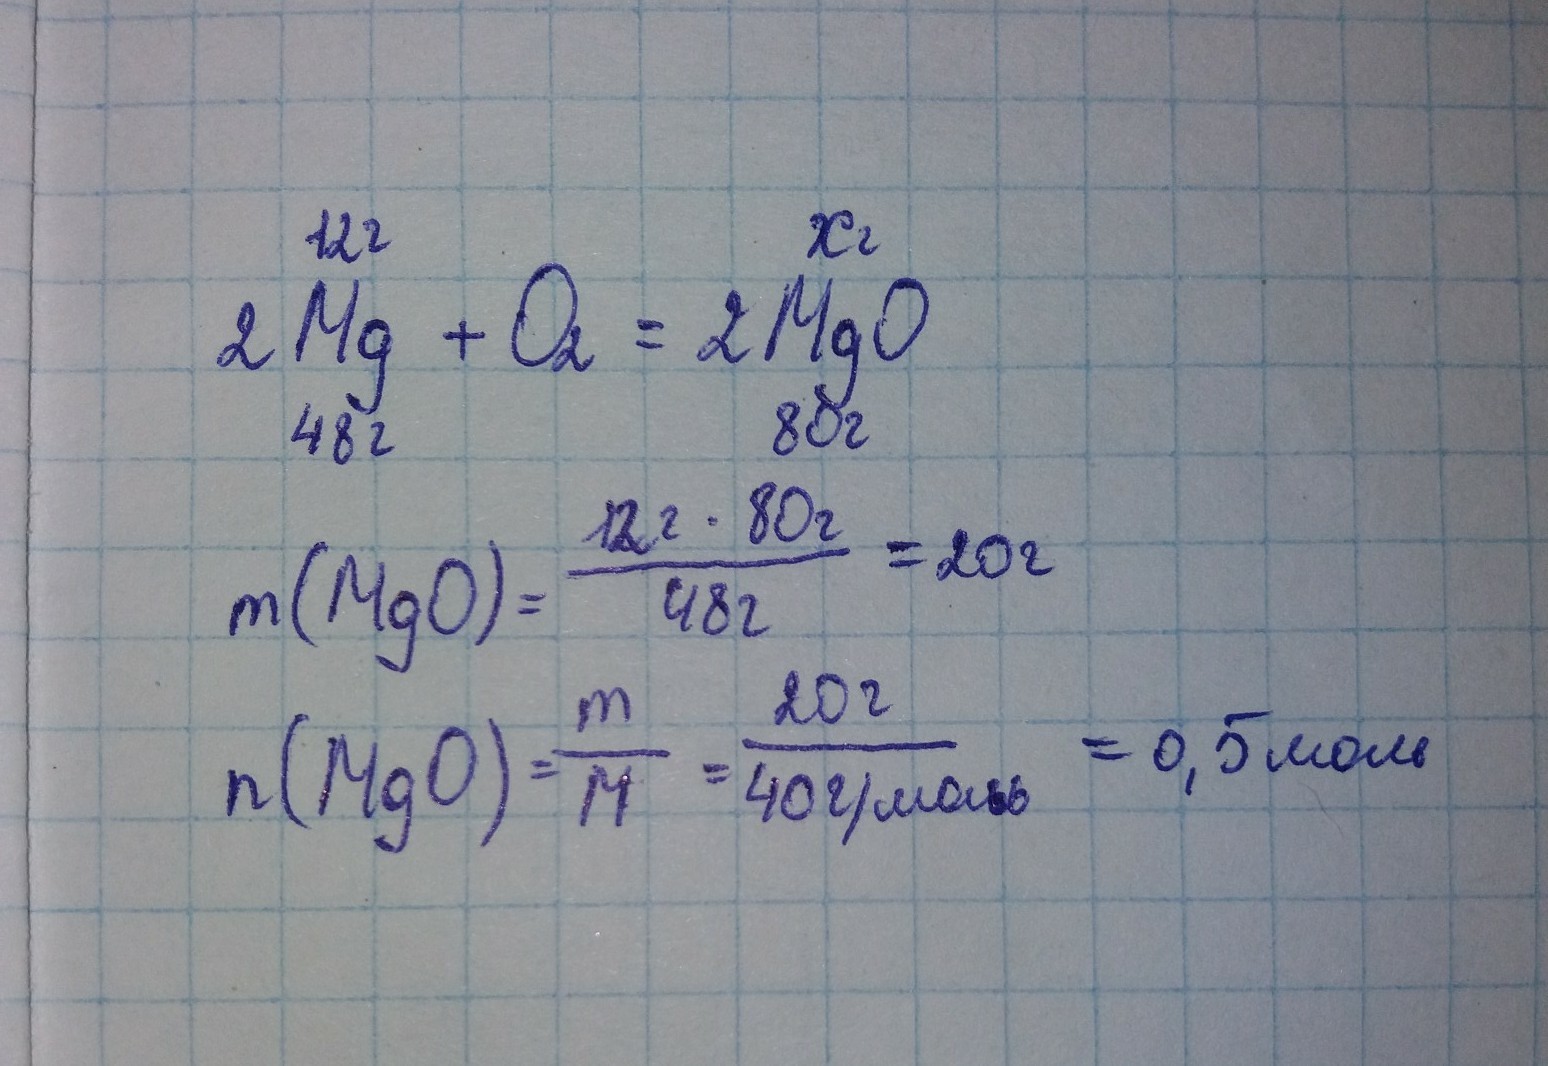 12г xг
2Mg + O₂ = 2MgO
48г 80г
m(MgO) = 12г · 80г / 48г = 20г
n(MgO) = m / M = 20г / 40г/моль = 0,5 моль